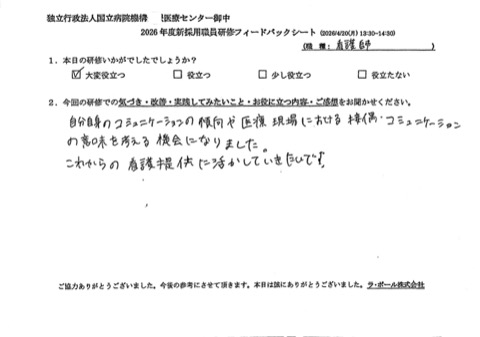 独立行政法人国立病院機構 医療センター御中
2026年度新採用職員研修フィードバックシート (2026/4/20(月) 13:30-14:30)
(職 種：看護師 )
1．本日の研修いかがでしたでしょうか？
☑ 大変役立つ □ 役立つ □ 少し役立つ □ 役立たない
2．今回の研修での気づき・改善・実践してみたいこと・お役に立つ内容・ご感想をお聞かせください。
自分自身のコミュニケーションの傾向や医療現場における接遇・コミュニケーション
の意味を考える機会になりました。
これからの看護提供に活かしていきたいです。
ご協力ありがとうございました。今後の参考にさせて頂きます。本日は誠にありがとうございました。ラ・ポール株式会社